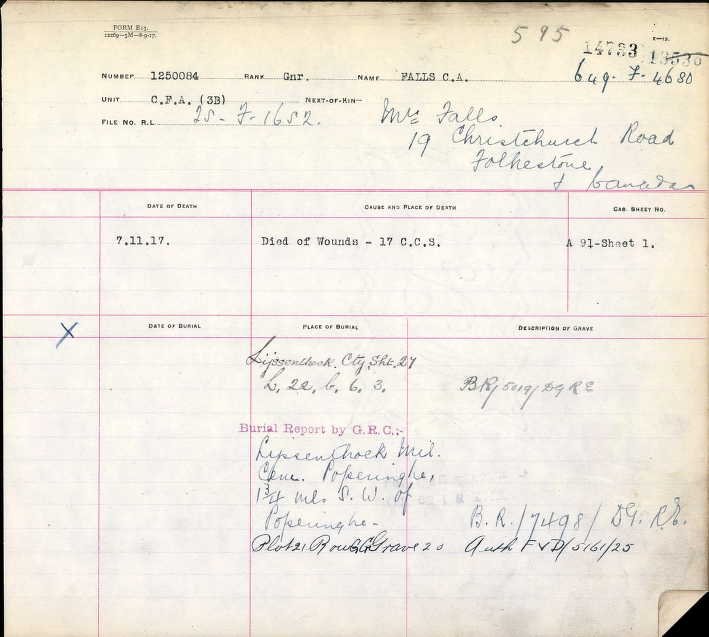 FORM E13.
12269—5M—8-9-17.
595
14783
13536
649-F-4680
NUMBER 1250084 RANK Gnr. NAME FALLS C.A.
UNIT C.F.A. (3B) NEXT-OF-KIN—
FILE NO. R.L 25-F-1652.
Falls
19 Christchurch Road
Folkestone
& Canada
DATE OF DEATH CAUSE AND PLACE OF DEATH CAS. SHEET NO.
7.11.17. Died of Wounds - 17 C.C.S. A 91-Sheet 1.
X DATE OF BURIAL PLACE OF BURIAL DESCRIPTION OF GRAVE
Lijssenthoek. Cty, Sht. 27
L. 22. b. 6. 3. BR/5019/DGRE
Burial Report by G.R.C.:-
Lijssenthoek Mil.
Cem. Poperinghe,
1¾ mls S. W. of
Poperinghe - B.R./7498/ DG. R.E.
Plot 21. Row GG Grave 20 Auth F V D/5161/25